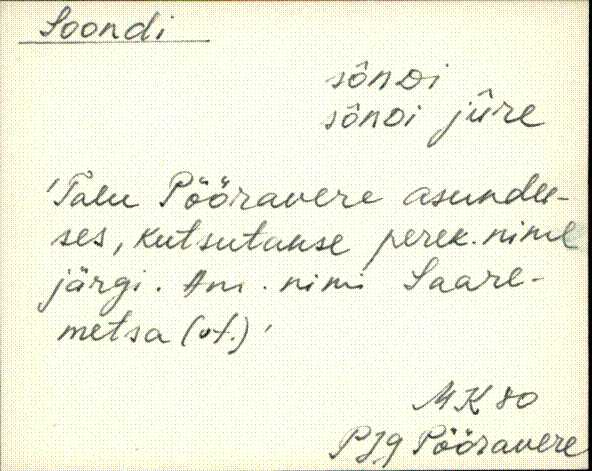 Soondi
sônDi
sônDi jûre
'Talu Pööravere asundu-
ses, kutsutakse perek. nime
järgi. Am. nimi Saare-
metsa (vt.)'
MK 80
PJg Pööravere